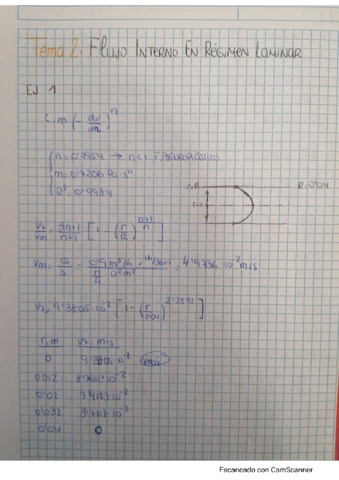 Tema 2. FLUJO INTERNO EN RÉGIMEN LAMINAR
EJ 1
τ = m (- dv/dr)^n
n = 0'7954 → n<1 PSEUDOPLÁSTICO
m = 0'7206 Pa·s^n
R² = 0'9934
r=R
R=0'04
r=0
vz/vm = 3n+1/n+1 [1 - (r/R)^(n+1/n)]
vm = Q/S = 0'9 m³/h · 1h/3600s / π/4 0' m² = 4'9736·10^-2 m/s
vz = 9'3805·10^-2 [1 - (r/0'04)]
r, m vz, m/s
0 9'3805·10^-2 vmax
0'012 10^-2
0'02 10^-2
0'032 10^-2
0'04 0
Escaneado con CamScanner